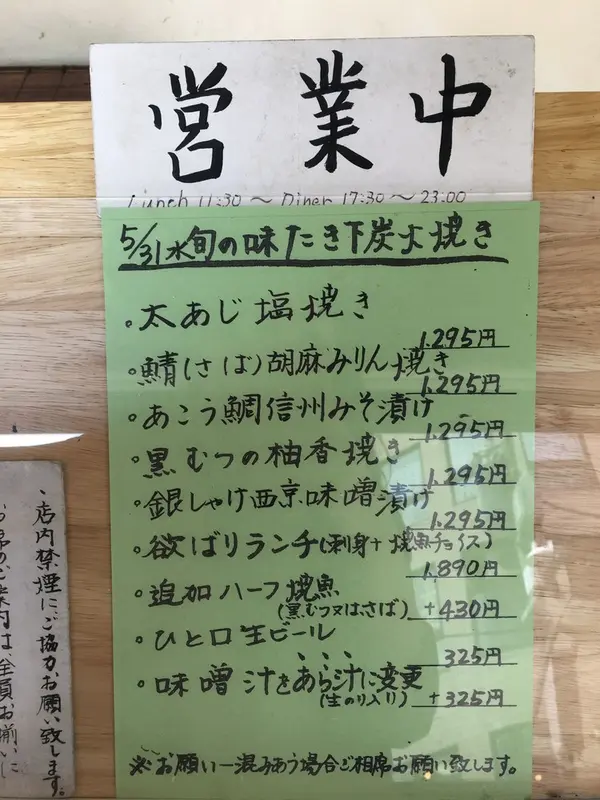 営業中
Lunch 11:30 〜 Diner 17:30 〜 23:00
5/31水旬の味たき下炭火焼き
。太あじ塩焼き
1,295円
。鯖(さば)胡麻みりん焼き
1,295円
。あこう鯛信州みそ漬け
1,295円
。黒むつの柚香焼き
1,295円
。銀しゃけ西京味噌漬け
1,295円
。欲ばりランチ(刺身+焼魚チョイス)
1,890円
。追加ハーフ焼魚
(黒むつ又はさば) +430円
。ひと口生ビール
325円
。味噌汁をあら汁に変更
(生のり入り) +325円
※お願い一混みあう場合ご相席お願い致します。
・店内禁煙にご協力お願い致します。
は、全員お揃いに